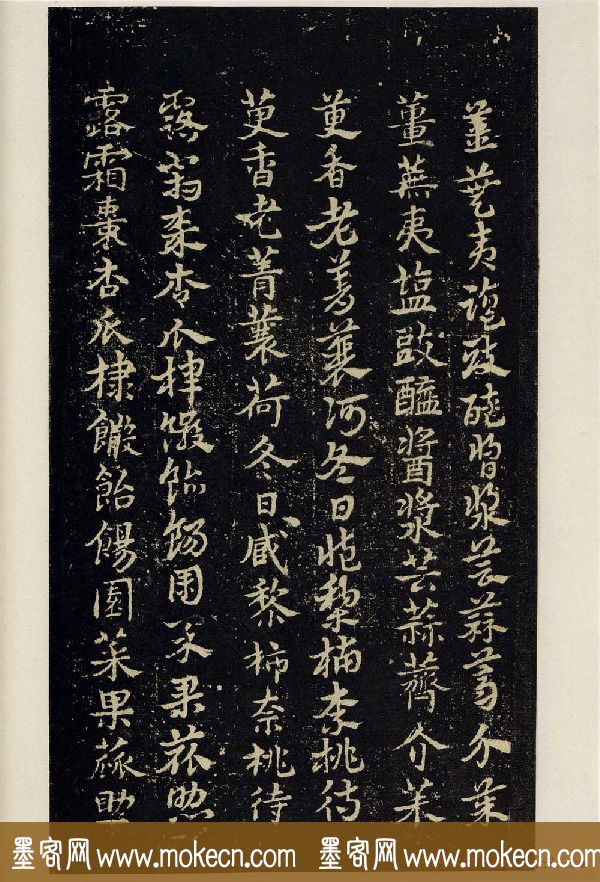 薑蕪夷塩豉醯醬漿芸蒜薺介茱
薑蕪夷塩豉醯醬漿芸蒜薺介茱
萸香老菁蘘河冬日臧黎柿柰桃待
萸香老菁蘘荷冬日臧黎柿奈桃待
露霜棗杏瓜棣饊飴餳園菜果蓏助
露霜棗杏瓜棣饊飴餳園菜果蓏助
墨客网 www.mokecn.com 墨客网 www.mokecn.com